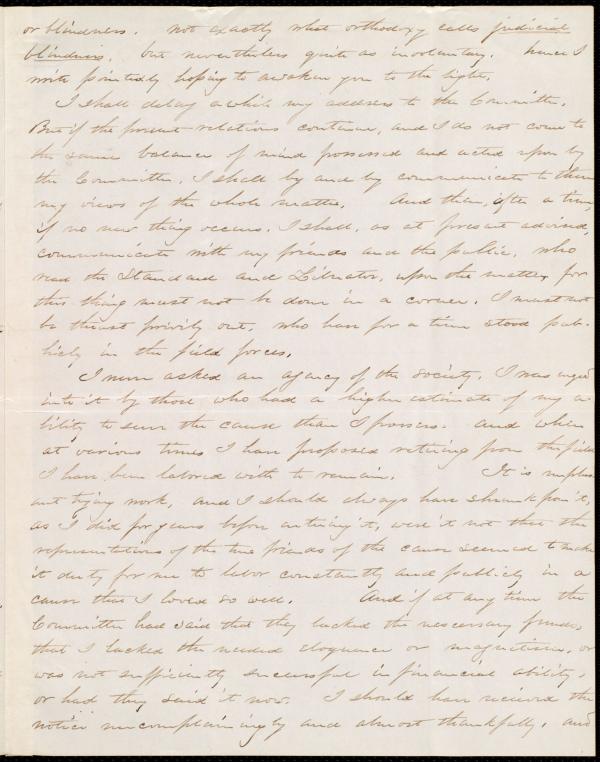 or blindness. not exactly what orthodoxy calls judicial
blindness, but nevertheless quite as involuntary. hence I
write pointedly hoping to awaken you to the light.
I shall delay awhile my address to the Committee.
But if the present relations continue, and I do not come to
the same balance of mind possessed and acted upon by
the Committee, I shall by and by communicate to them
my views of the whole matter. And then, after a time,
if no new thing occurs, I shall, as at present advised,
communicate with my friends and the public, who
read the Standard and Liberator, upon the matter, for
this thing must not be done in a corner. I must not
be thrust privily out, who have for a time stood pub-
licly in the field forces.
I never asked an agency of the society. I was urged
into it by those who had a higher estimate of my a-
bility to serve the cause than I possess. And when
at various times I have proposed retiring from the field
I have been labored with to remain. It is unpleas
ant trying work, and I should always have shrunk from it,
as I did for years before entering it, were it not that the
representations of the true friends of the cause seemed to make
it duty for me to labor constantly and publicly in a
cause that I loved so well. And if at any time the
Committee had said that they lacked the necessary funds,
that I lacked the needed eloquence or magnetism, or
was not sufficiently successful in financial ability,
or had they said it now. I should have received the
notice uncomplainingly and almost thankfully, and